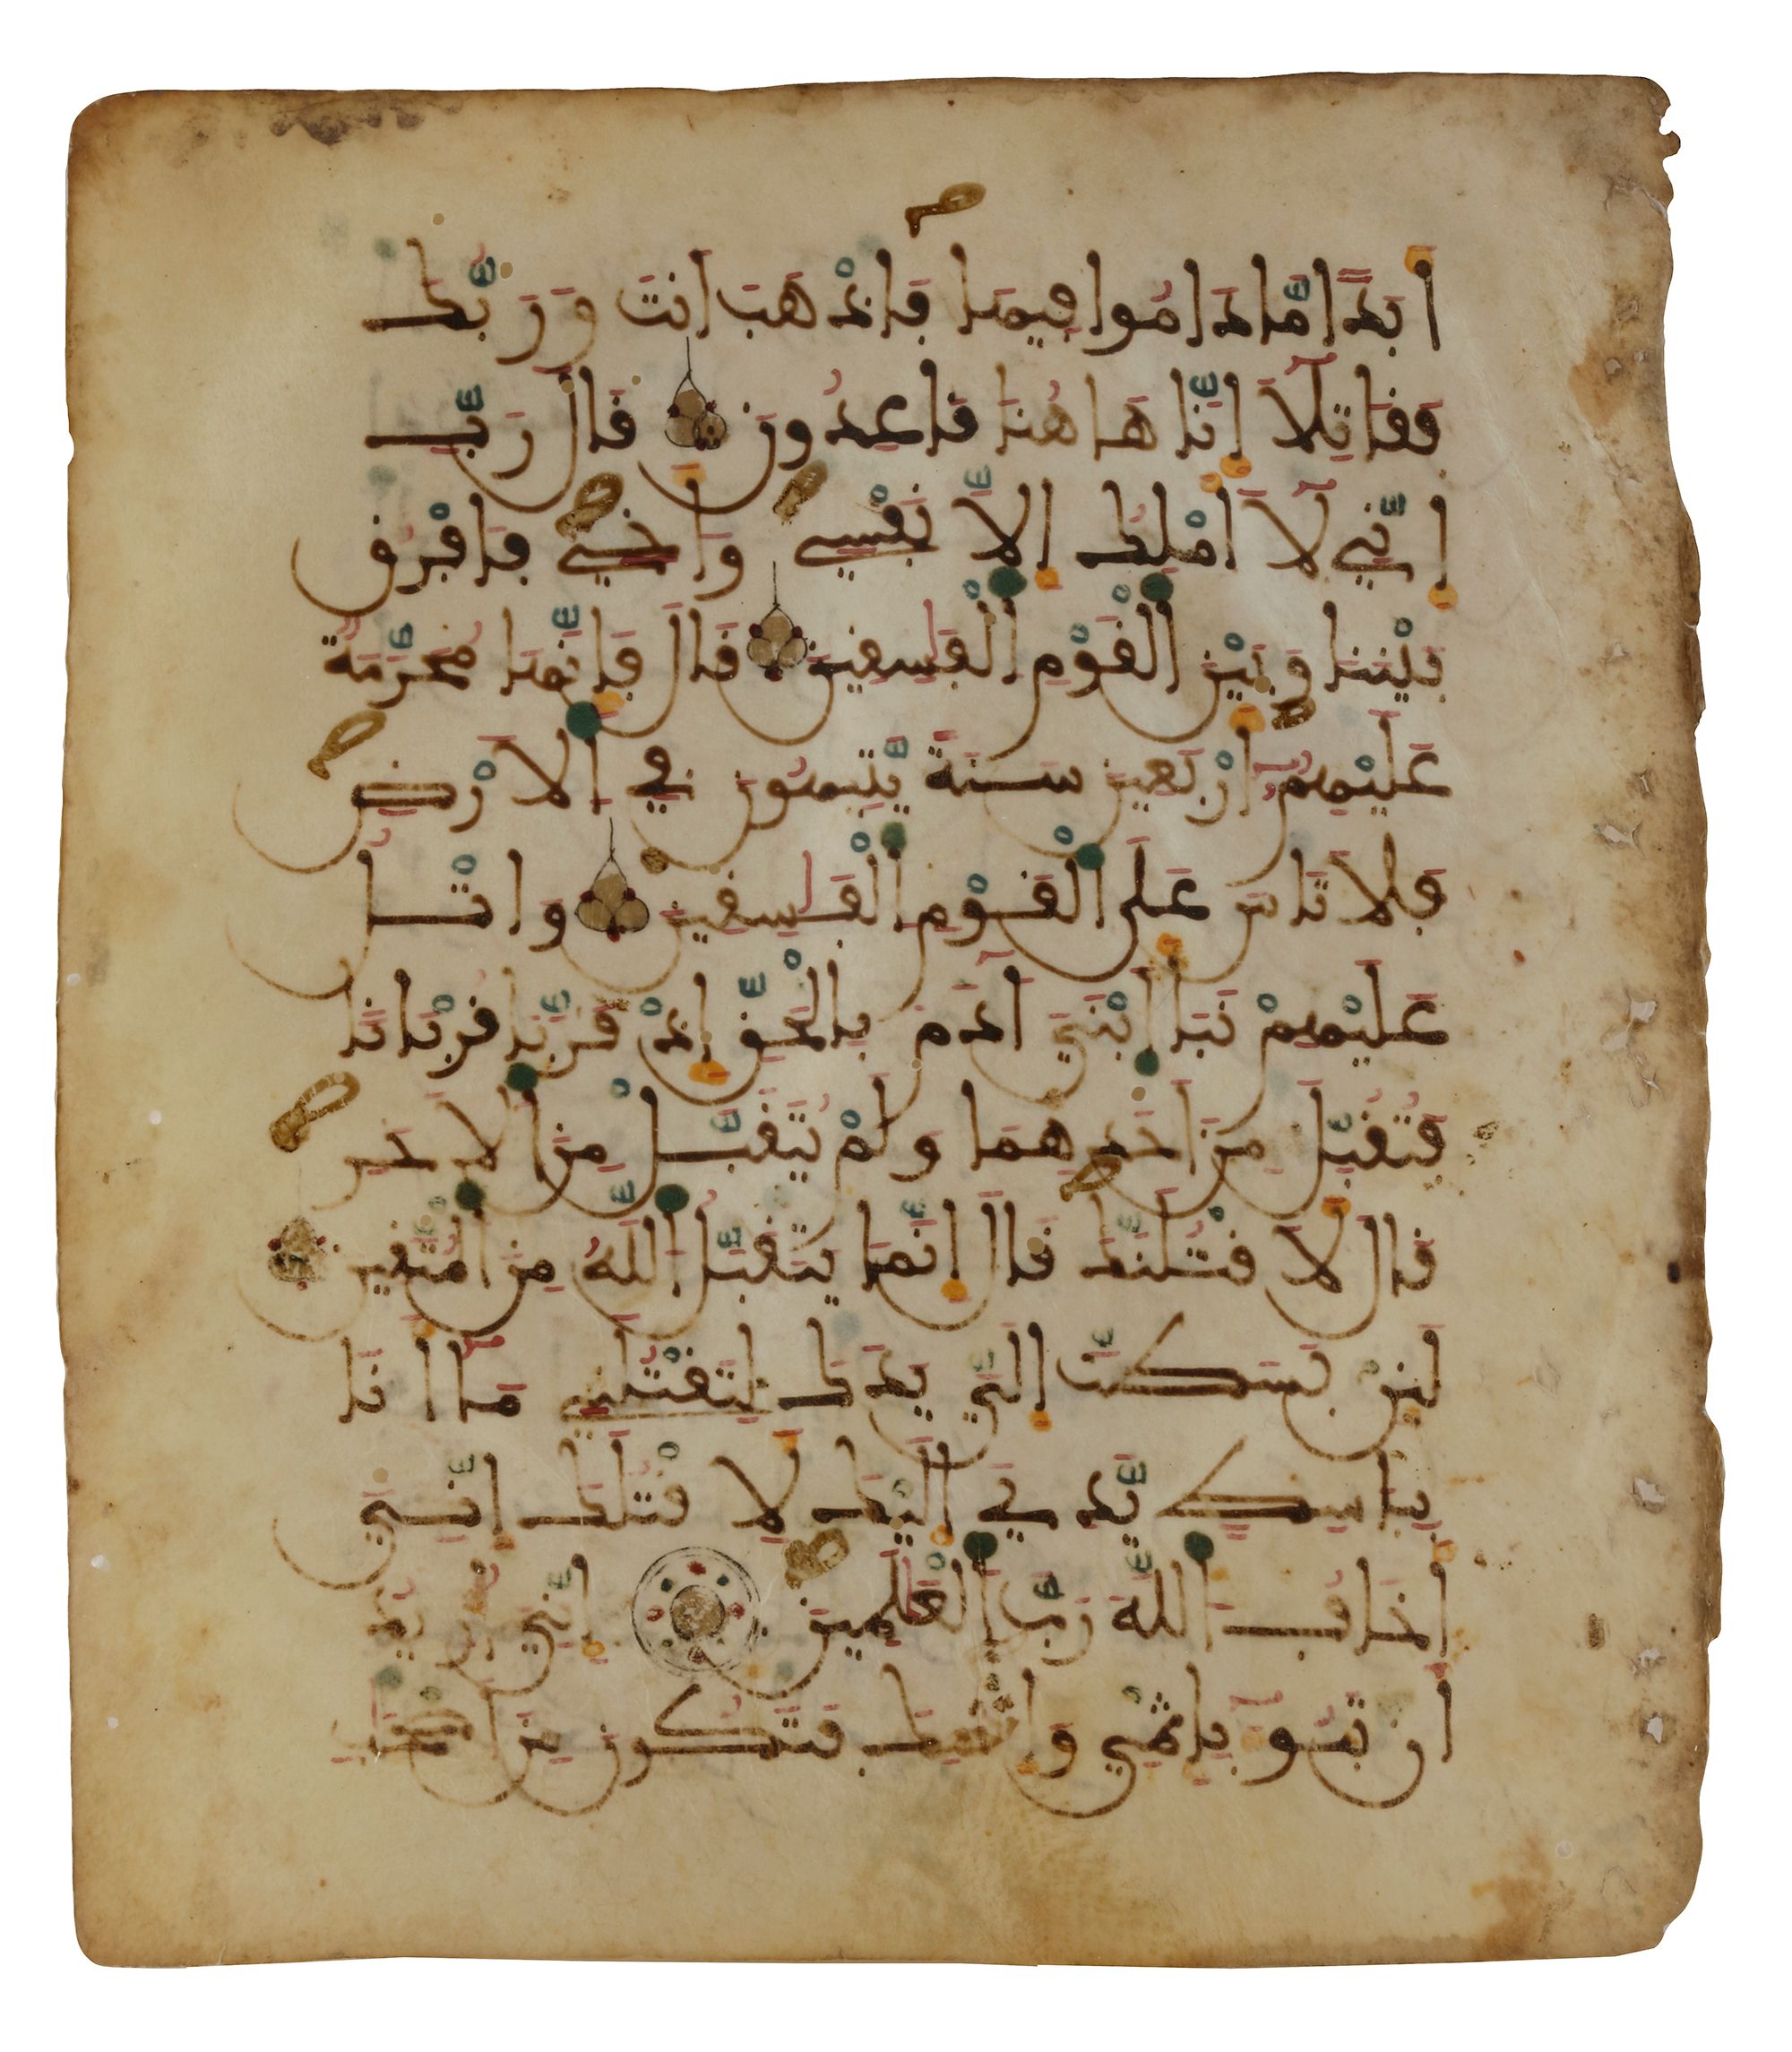 أَبَدًا مَّا دَامُوا فِيهَا فَاذْهَبَ انتَ وَرَبُّكَ
فَقَاتِلَآ إِنَّا هَاهُنَا قَاعِدُونَ قَالَ رَبِّ
إِنِّي لَآ أَمْلِكُ إِلَّا نَفْسِي وَأَخِي فَافْرُقْ
بَيْنَنَا وَبَيْنَ الْقَوْمِ الْفَٰسِقِينَ قَالَ فَإِنَّهَا مُحَرَّمَةٌ
عَلَيْهِمُۥٓ أَرْبَعِينَ سَنَةً يَّتِيهُونَ فِي الَارْضِ
فَلَا تَاسَ عَلَى الْقَوْمِ الْفَٰسِقِينَ وَاتْلُ
عَلَيْهِمْ نَبَأَ ابْنَيَ آدَمَ بِالْحَقِّ إِذْ قَرَّبَا قُرْبَانًا
فَتُقُبِّلَ مِنَ احَدِهِمَا وَلَمْ يُتَقَبَّلْ مِنَ الَاخَرِ
قَالَ لَأَقْتُلَنَّكَ قَالَ إِنَّمَا يَتَقَبَّلُ اللَّهُ مِنَ الْمُتَّقِينَ
لَئِنۢ بَسَطتَّ إِلَيَّ يَدَكَ لِتَقْتُلَنِي مَآ أَنَا
بِبَاسِطٍ يَّدِيَ إِلَيْكَ لَأَقْتُلَكَ إِنِّيَ
أَخَافُ اللَّهَ رَبَّ الْعَٰلَمِينَ إِنِّيَ أُرِيدُ
أَن تَبُوٓأَ بِإِثْمِي وَإِثْمِكَ فَتَكُونَ مِنَ اصْحَٰبِ